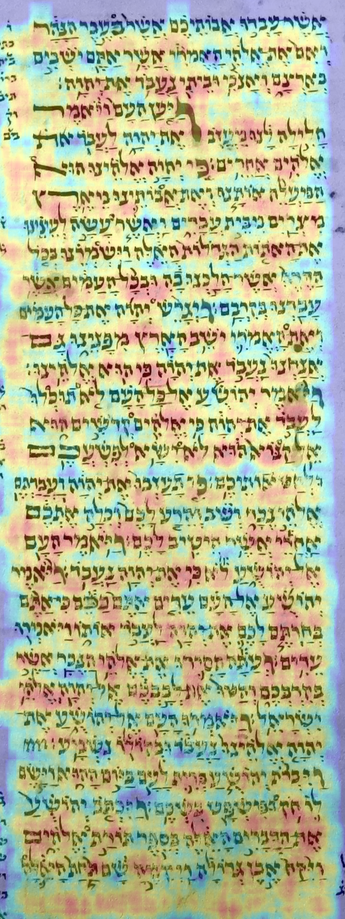 אשר עבדו אבותיכם אשר בעבר הנהר
ואם את אלהי האמרי אשר אתם ישבים
בארצם ואנכי וביתי נעבד את יהוה׃
ויען העם ויאמר
חלילה לנו מעזב את יהוה לעבד
אלהים אחרים׃ כי יהוה אלהינו הוא
המעלה אותנו ואת אבותינו מארץ
מצרים מבית עבדים ואשר עשה לעינינו
את האתות הגדלות האלה וישמרנו בכל
הדרך אשר הלכנו בה ובכל העמים אשר
עברנו בקרבם׃ ויגרש יהוה את כל העמים
ואת האמרי ישב הארץ מפנינו גם
אנחנו נעבד את יהוה כי הוא אלהינו׃
ויאמר יהושע אל העם לא תוכלו
לעבד את יהוה כי אלהים קדשים הוא
אל קנוא הוא לא ישא לפשעכם
כי תעזבו את יהוה ועבדתם
אלהי נכר ושב והרע לכם וכלה אתכם
אחרי אשר היטיב לכם׃ ויאמר העם
אל יהושע לא כי את יהוה נעבד׃ ויאמר
יהושע אל העם עדים אתם בכם כי אתם
בחרתם לכם את יהוה לעבד אותו ויאמרו
עדים׃ ועתה הסירו את אלהי הנכר אשר
בקרבכם והטו את לבבכם אל יהוה אלהי
ישראל׃ ויאמרו העם אל יהושע את
יהוה אלהינו נעבד ובקולו נשמע׃
ויכרת יהושע ברית לעם ביום ההוא וישם
לו חק ומשפט בשכם׃ ויכתב יהושע
את הדברים האלה בספר תורת אלהים
ויקח אבן גדולה ויקימה שם תחת האלה